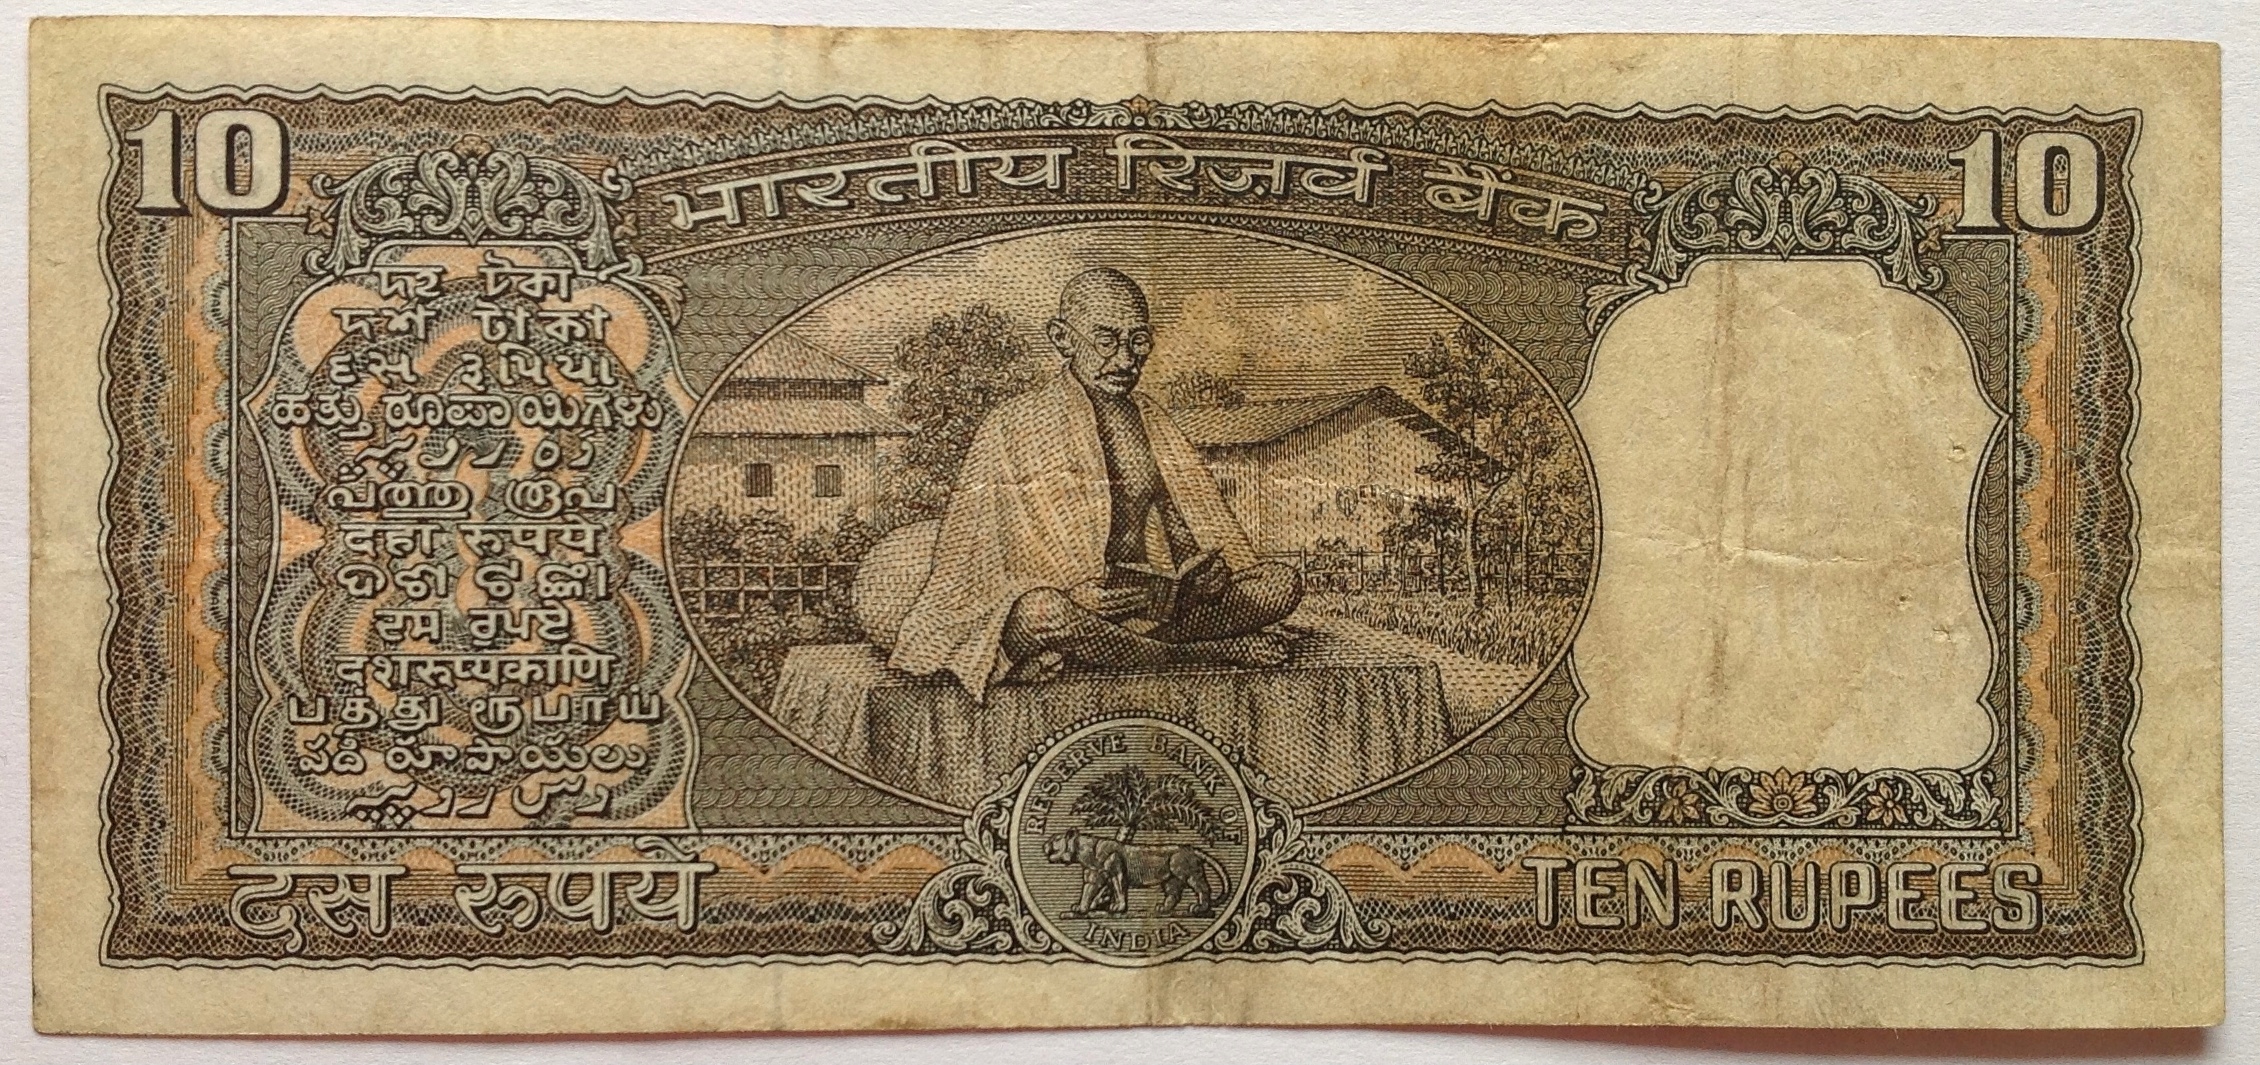 10
10
भारतीय रिज़र्व बैंक
দহ টকা
দশ টাকা
દસ રૂપિયા
ಹತ್ತು ರೂಪಾಯಿಗಳು
പത്തു രൂപ
दहा रुपये
ଦଶ ଟଙ୍କା
ਦਸ ਰੁਪਏ
दशरुप्यकाणि
பத்து ரூபாய்
పది రూపాయలు
RESERVE BANK OF INDIA
दस रुपये
TEN RUPEES